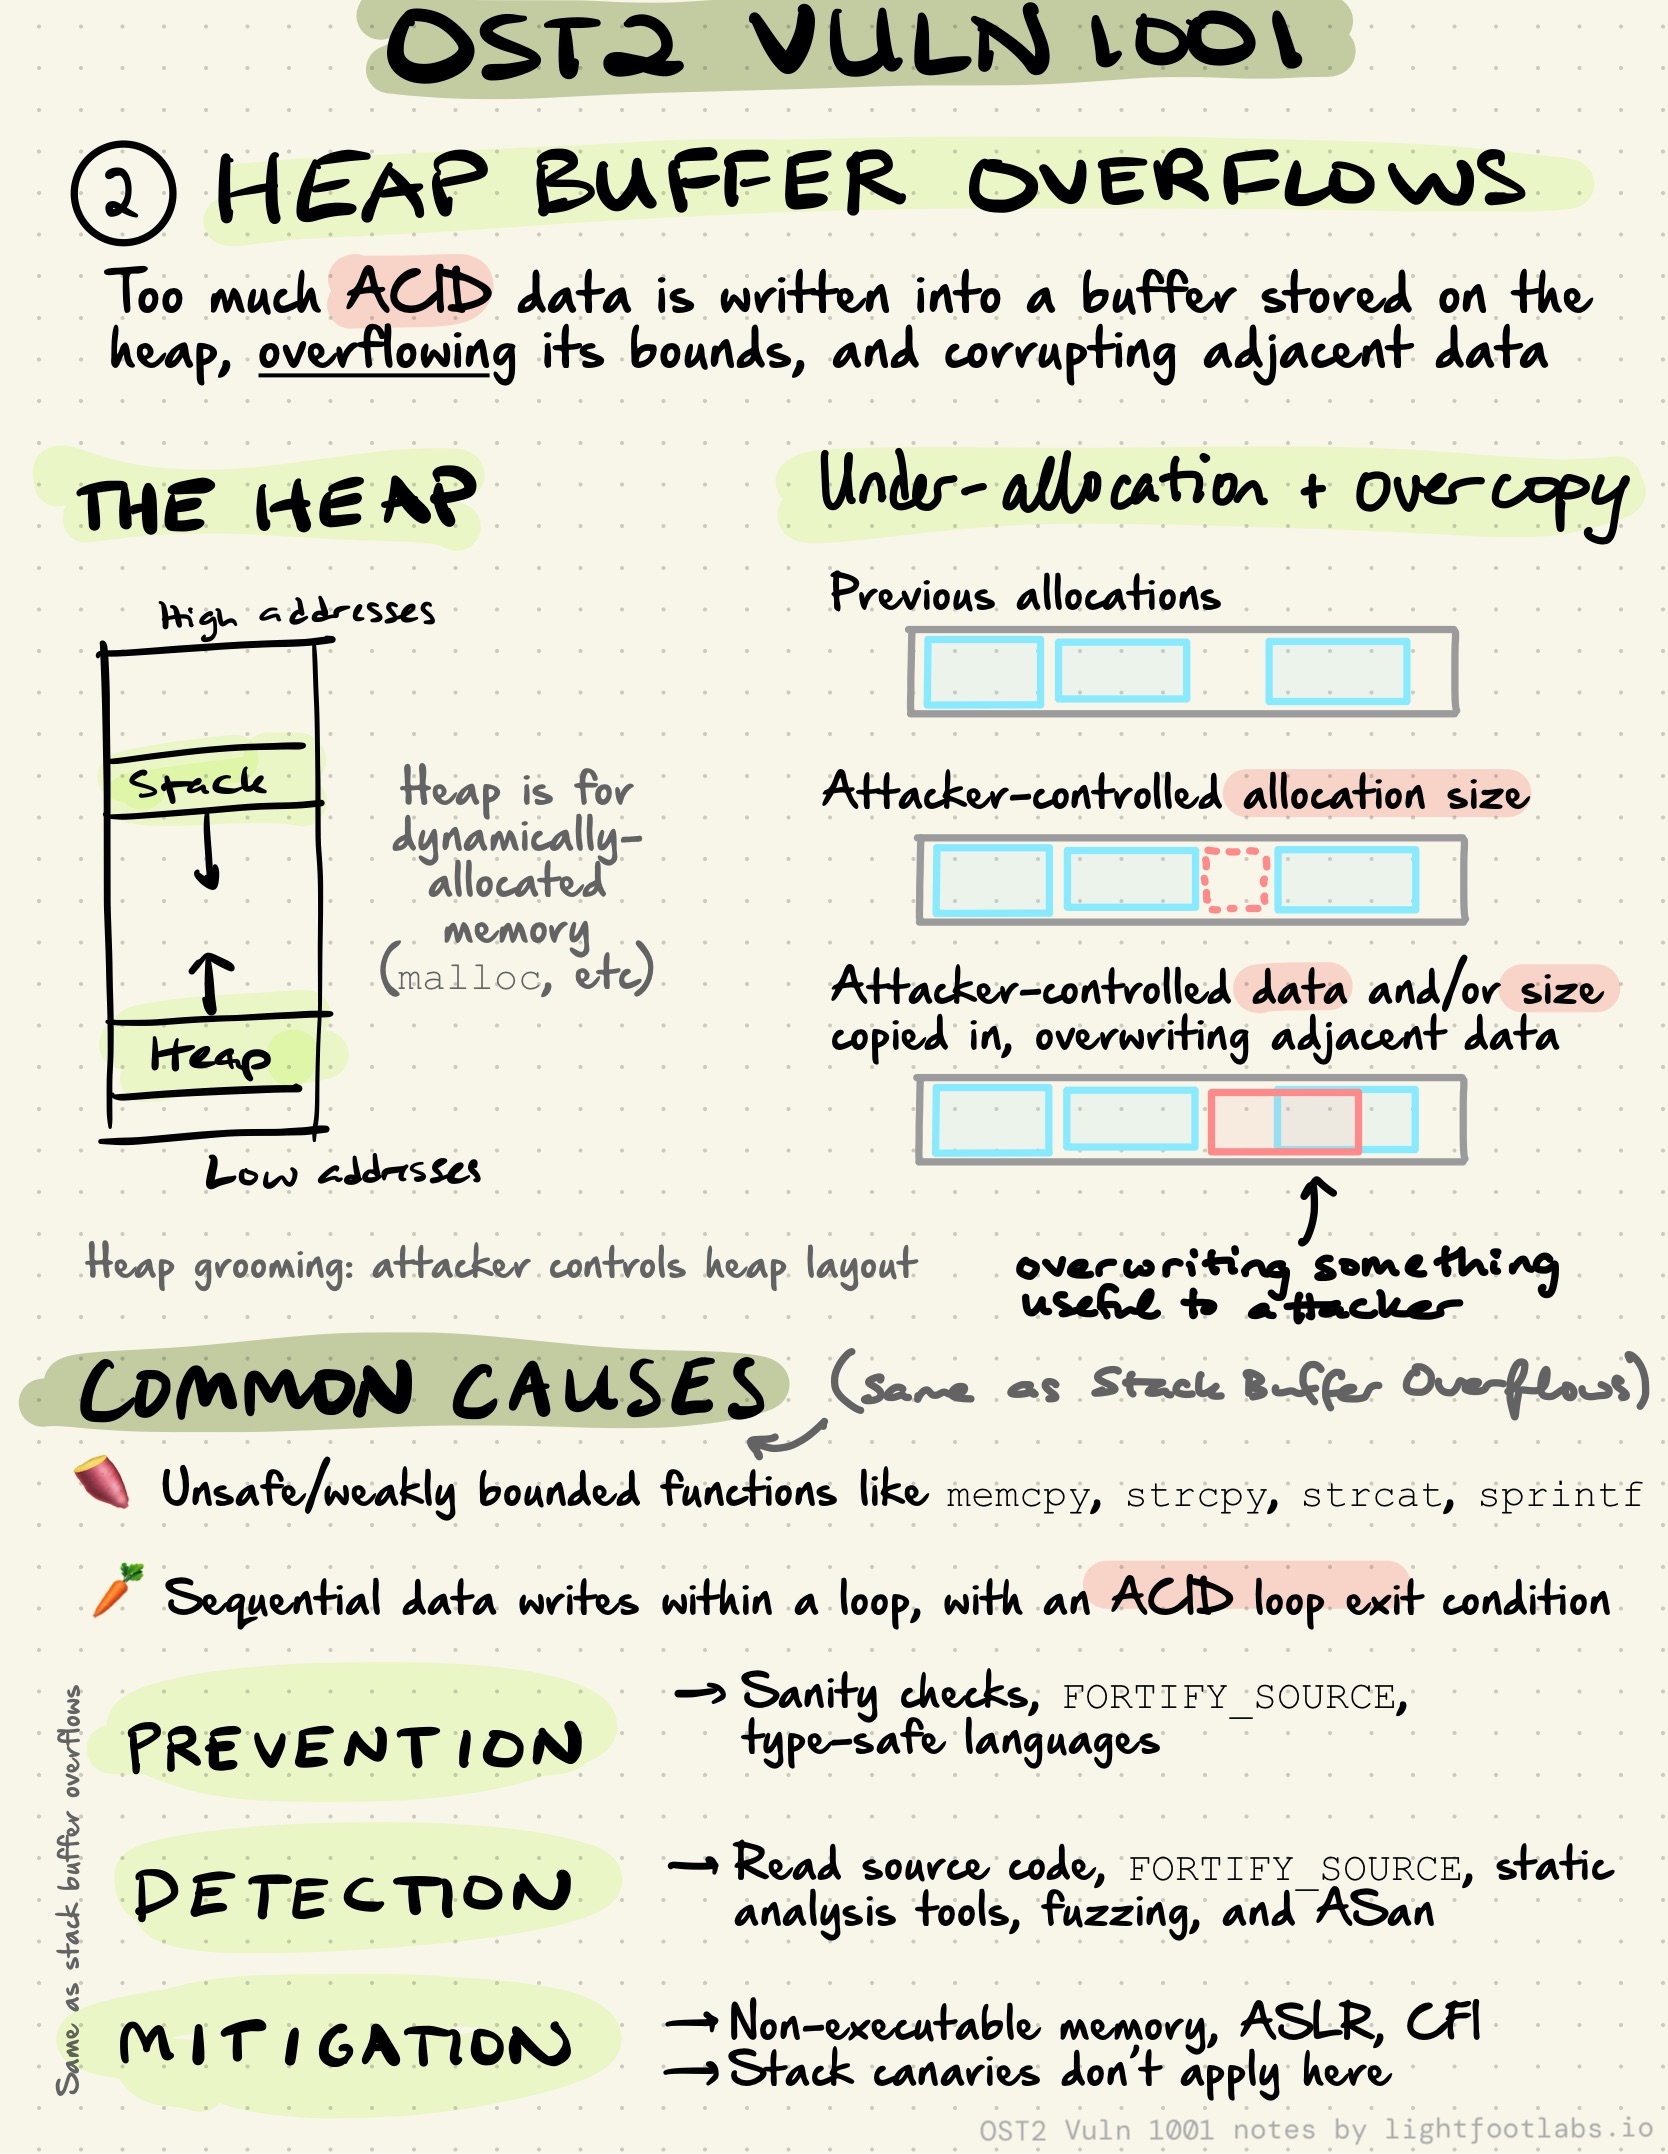 OST2 VULN 1001
2 HEAP BUFFER OVERFLOWS
Too much ACID data is written into a buffer stored on the
heap, overflowing its bounds, and corrupting adjacent data
THE HEAP
High addresses
Stack
Heap
Low addresses
Heap is for
dynamically-
allocated
memory
(malloc, etc)
Heap grooming: attacker controls heap layout
Under-allocation + overcopy
Previous allocations
Attacker-controlled allocation size
Attacker-controlled data and/or size
copied in, overwriting adjacent data
overwriting something
useful to attacker
COMMON CAUSES
(same as Stack Buffer Overflows)
Unsafe/weakly bounded functions like memcpy, strcpy, strcat, sprintf
Sequential data writes within a loop, with an ACID loop exit condition
Same as stack buffer overflows
PREVENTION
→ Sanity checks, FORTIFY_SOURCE,
type-safe languages
DETECTION
→ Read source code, FORTIFY_SOURCE, static
analysis tools, fuzzing, and ASan
MITIGATION
→ Non-executable memory, ASLR, CFI
→ Stack canaries don't apply here
OST2 Vuln 1001 notes by lightfootlabs.io